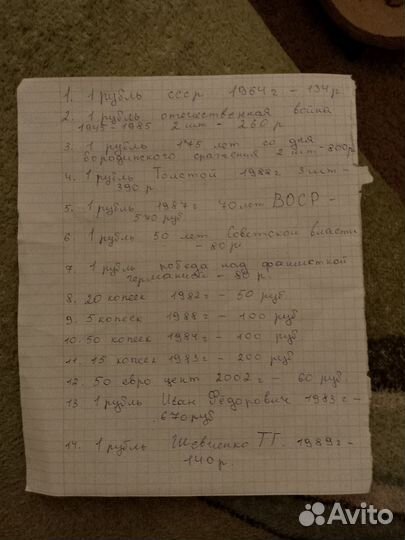 1. 1 рубль ссср 1964г - 134р
2. 1 рубль отечественная война
1945-1985 2 шт - 260 р
3. 1 рубль 175 лет со дня
бородинского сражения 2 шт - 800р
4. 1 рубль Толстой 1988г 3 шт -
390 р
5. 1 рубль 1987г 70 лет ВОСР -
570 руб
6 1 рубль 50 лет Советской власти
- 80 р
7. 1 рубль победа над фашисткой
германией - 80 р
8. 20 копеек 1982г - 50 руб
9. 5 копеек 1988г - 100 руб
10. 50 копеек 1984г - 100 руб
11. 15 копеек 1983г - 200 руб
12. 50 евро цент 2002г - 60 руб
13. 1 рубль Иван Фёдорович 1983г -
670 руб
14. 1 рубль Шевченко Т.Г. 1989г -
140 р.
Avito